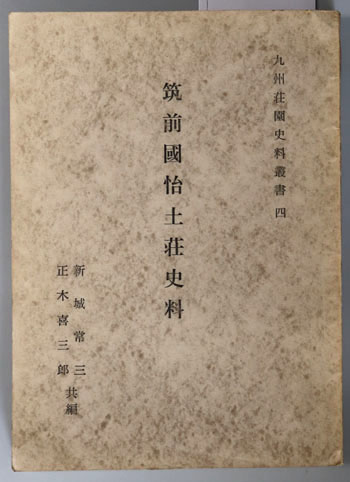 九州荘園史料叢書 四
筑前國怡土荘史料
新城常三
正木喜三郎
共編